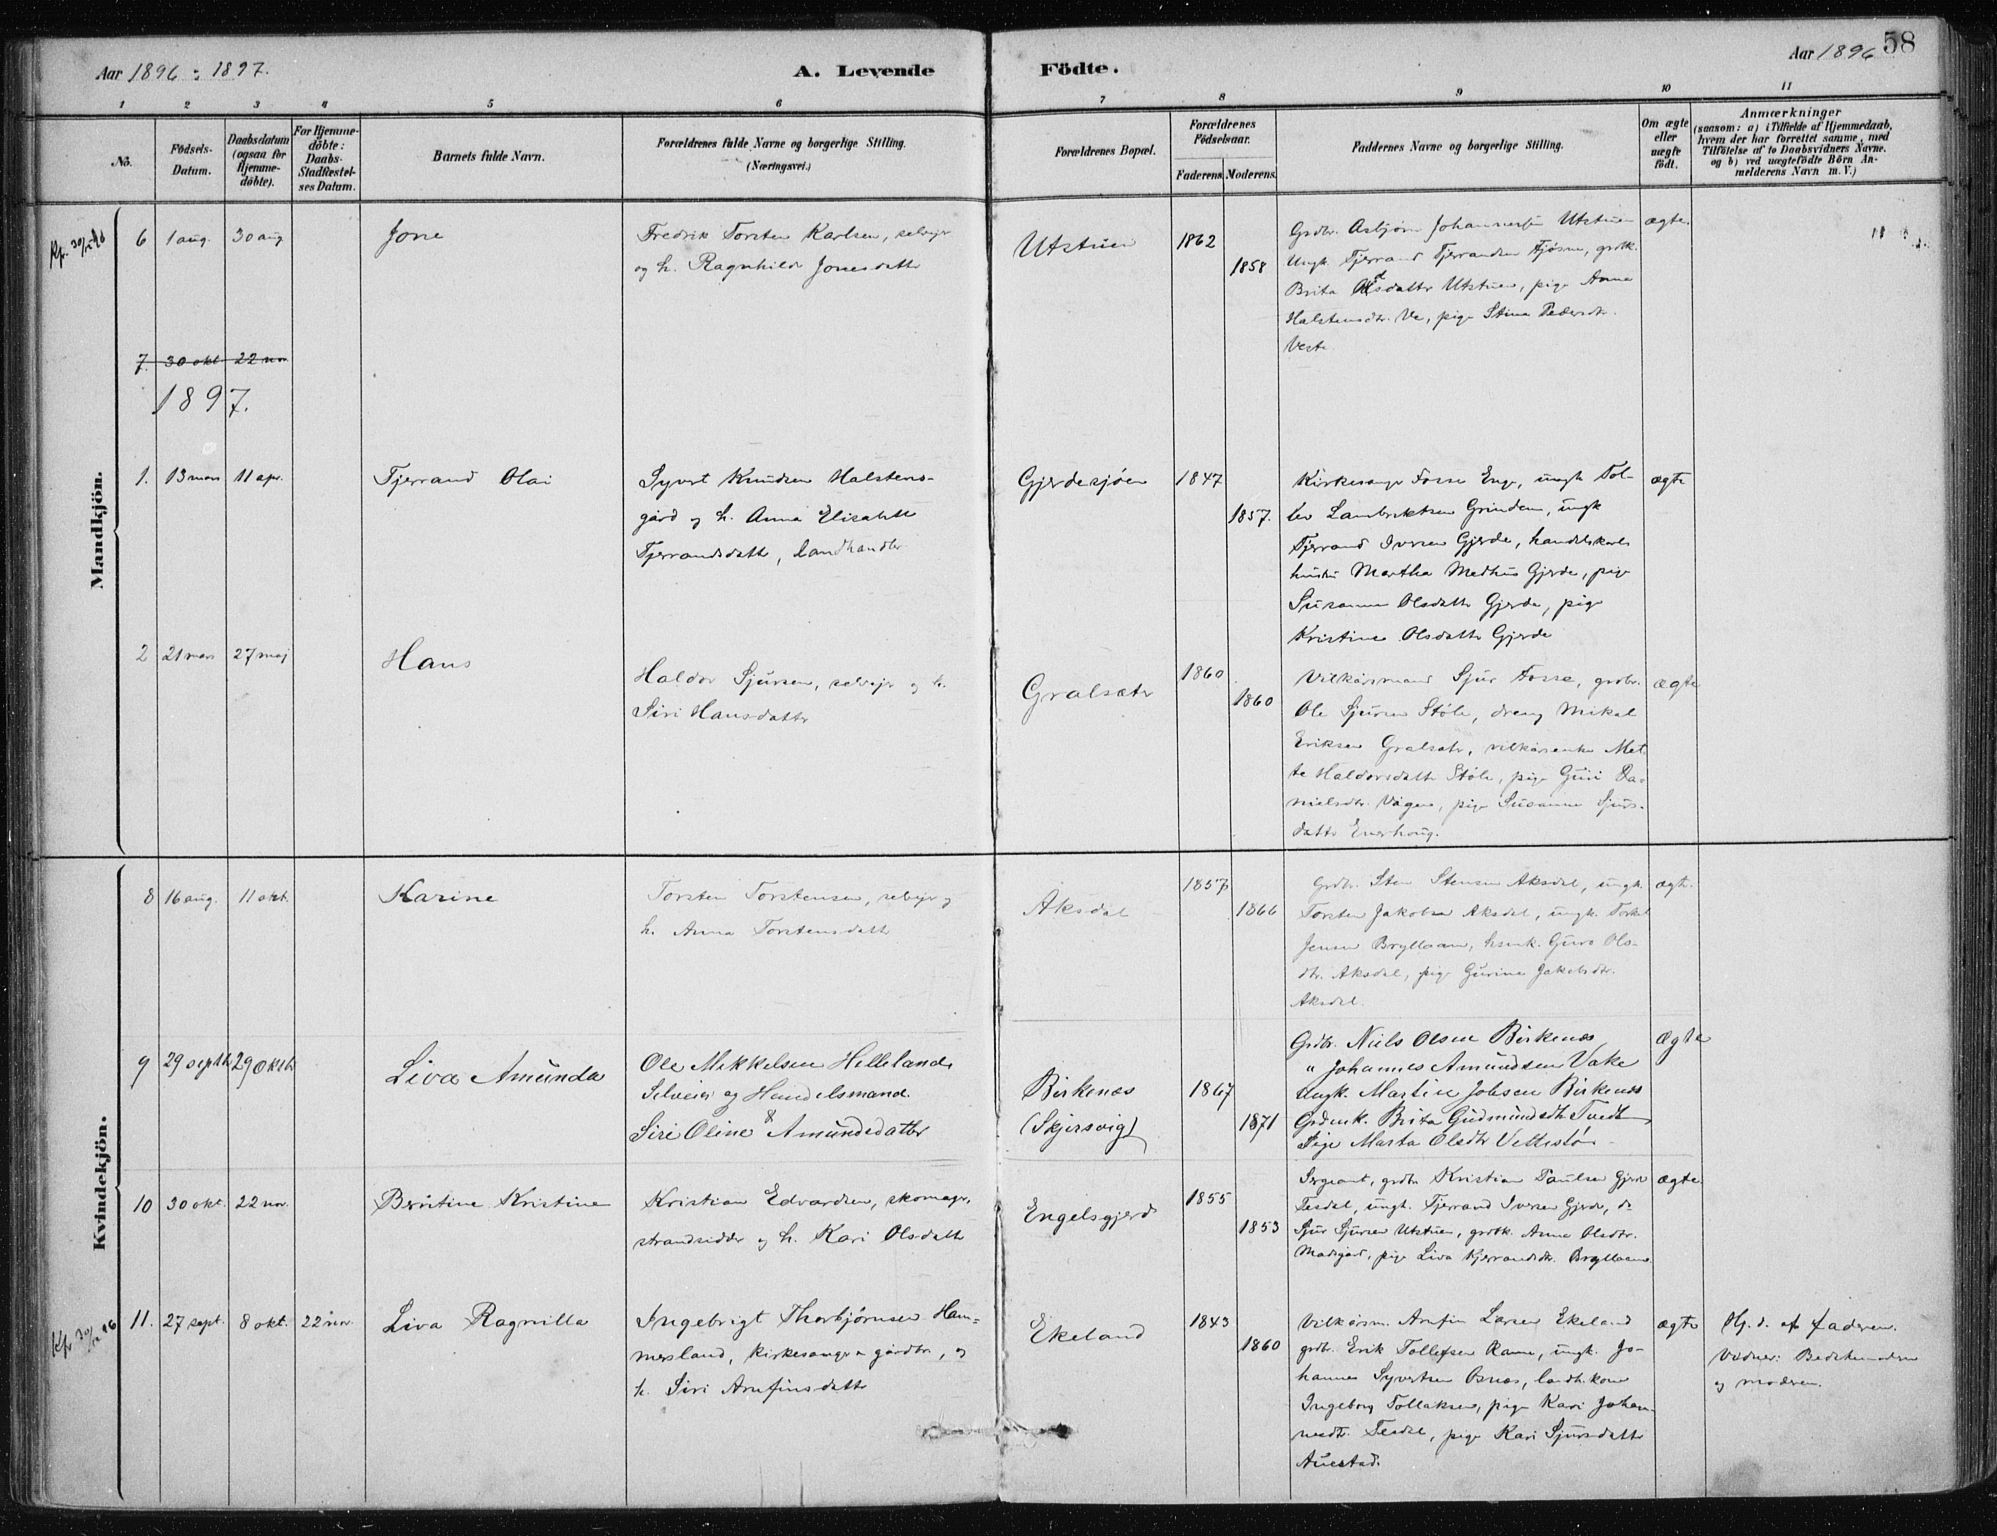 Aar 1896 : 1897.
A. Levende
Födte.
Aar 1896
58
1 2 3 4 5 6 7 8 9 10 11
No.
Födsels-
Datum.
Daabsdatum
(ogsaa for
Hjemme-
döbte).
For Hjemme-
döbte:
Daabs-
Stadfæstel-
ses Datum.
Barnets fulde Navn.
Forældrenes fulde Navne og borgerlige Stilling.
(Næringsvei.)
Forældrenes Bopæl.
Forældrenes
Födselsaar.
Faderens.
Moderens.
Faddernes Navne og borgerlige Stilling.
Om ægte
eller
uægte
födt.
Anmærkninger
(saasom: a) i Tilfælde af Hjemmedaab,
hvem der har forrettet samme, med
Tilföielse af to Daabsvidners Navne.
og b) ved uægtefödte Börn An-
melderens Navn m. V.)
Mandkjön.
6 1 aug. 30 aug
Jone
Fredrik Torsten Karlsen, selvejr
og h. Ragnhild Jonesdattr
Utstuen
1862
1858
Grdbr. Asbjørn Johannessen Utstuen
Ungk. Tjerrand Tjerrandsen Fjøsne, grdk.
Brita Olsdattr Utstuen, pige Anna
Halstensdtr. Ve, pige Stina Pedersdtr.
Veste
ægte.
7. 30 okt 22 nov
1897.
1. 13 mars 11 apr.
Tjerrand Olai
Syvert Knudsen Halstens-
gård og h. Anna Elisabeth
Tjerrandsdattr, landhandler
Gjerdesjøen
1847
1857.
Kirkesanger Fosse Enge, ungk. Tol-
lev Lambriktsen Grindem, ungk
Tjerrand Iversen Gjerde, handelskarls
hustru Martha Medhus Gjerde, pige
Susanna Olsdattr Gjerde, pige
Kristine Olsdattr Gjerde
ægte
2 21 mars 27 maj
Hans
Haldor Sjursen, selvejr og h.
Siri Hansdattr
Gralsætr
1860
1860
Vilkårsmand Sjur Fosse, grdbr.
Ole Sjursen Støle, dreng Mikal
Eriksen Gralsætr, vilkårsenke Met-
te Haldorsdattr Støle, pige Guri Da-
nielsdtr. Vågen, pige Susanna Sjurs-
dattr Enerhaug.
ægte
Kvindekjön.
8 16 aug. 11 okt.
Karine
Torsten Torstensen, selvejr og
h. Anna Torstensdattr
Aksdal
1857
1866
Grdbr. Sten Stensen Aksdal, ungk.
Torsten Jakobsen Aksdal, ungk. Torkel
Jensen Bryllaam, husk. Guro Ols-
dtr. Aksdal, pige Gurina Jakobsdtr.
Aksdal.
ægte.
9 29 septbr 29 Oktbr
Liva Amunda
Ole Mikkelsen Hellelands
Selveier og Handelsmand
Siri Oline Amundsdatter
Birkenæs
(Skjersvig)
1867
1871
Grdbr. Niels Olsen Birkenæs
" Johannes Amundsen Vake
Ungk. Martin Jobsen Birkenæs
Grdmk. Brita Gudmundsdtr Tvedt
Pige Marta Olsdtr Vettestø
Ægte
10 30 okt. 22 nov.
Berntine Kristine
Kristian Edvardsen, skomager,
strandsidder og h. Kari Olsdattr
Engelsgjerd
1855
1853
Sergeant, grdbr Kristian Paulsen Gjerde
Tesdal, ungk. Tjerrand Iversen Gjerde, do
Sjur Sjursen Utstuen, grdk. Anna Olsdtr.
Madsgård, pige Liva Kjerrandsdtr. Bryllaam.
ægte
11. 27 sept. 8 okt. 22 nov.
Liva Ragnilla
Ingebrigt Thorbjørnsen Ham-
mersland, kirkesanger & gårdbr., og
h. Siri Arnfinsdattr
Ekeland
1843
1860
Vilkårsm. Arnfin Larsen Ekeland
grdbr. Erik Tollefsen Ramme, ungk. Jo-
hannes Syvertsen Osnes, landh. kone
Ingeborg Tollaksen, pige Kari Johan-
nesdtr. Tesdal, pige Kari Sjursdattr
Auestad.
ægte
Hj. d. af faderen.
Vidner: Bedstemoderen
og moderen.